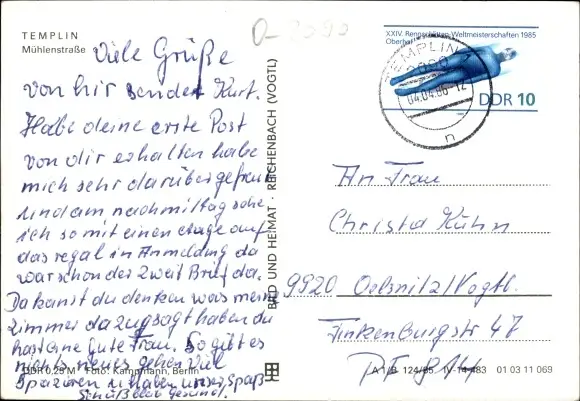 TEMPLIN
Mühlenstraße
Viele Grüße
von hir sendet Kurt.
Habe deine erste Post
von dir erhalten habe
mich sehr darüber gefreut
und am nachmittag sehe
ich so mit einen etage auf
das regal in Anmeldung da
war schon der Zweit Brief da.
Da kanst du denken was meine
zimmer dazu gsagt haben du
hast eine Gute Frau. So gibt es
nichts neues gehen viel
Spazieren u haben unser Spaß
Schüß bleib gesund.
DDR 0,25 M Foto: Kampmann, Berlin
BILD UND HEIMAT · REICHENBACH (VOGTL)
XXIV. Rennschlitten-Weltmeisterschaften 1985
Oberhof
DDR 10
TEMPLIN 1
2090
04.04.86-12
n
An Frau
Christa Kühn
9920 Oelsnitz/Vogtl.
Finkenburgstr 47
PF
A 1/B 124/85 IV-14-483 01 03 11 069